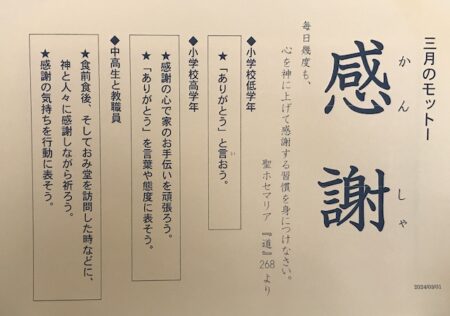 三月のモットー
かんしゃ
感謝
2024/03/01
毎日幾度も、
心を神に上げて感謝する習慣を身につけなさい。
聖ホセマリア『道』268より
◆小学校低学年
★「ありがとう」と言おう。
◆小学校高学年
★感謝の心で家のお手伝いを頑張ろう。
★「ありがとう」を言葉や態度に表そう。
◆中高生と教職員
★食前食後、そしておみ堂を訪問した時などに、
神と人々に感謝しながら祈ろう。
★感謝の気持ちを行動に表そう。